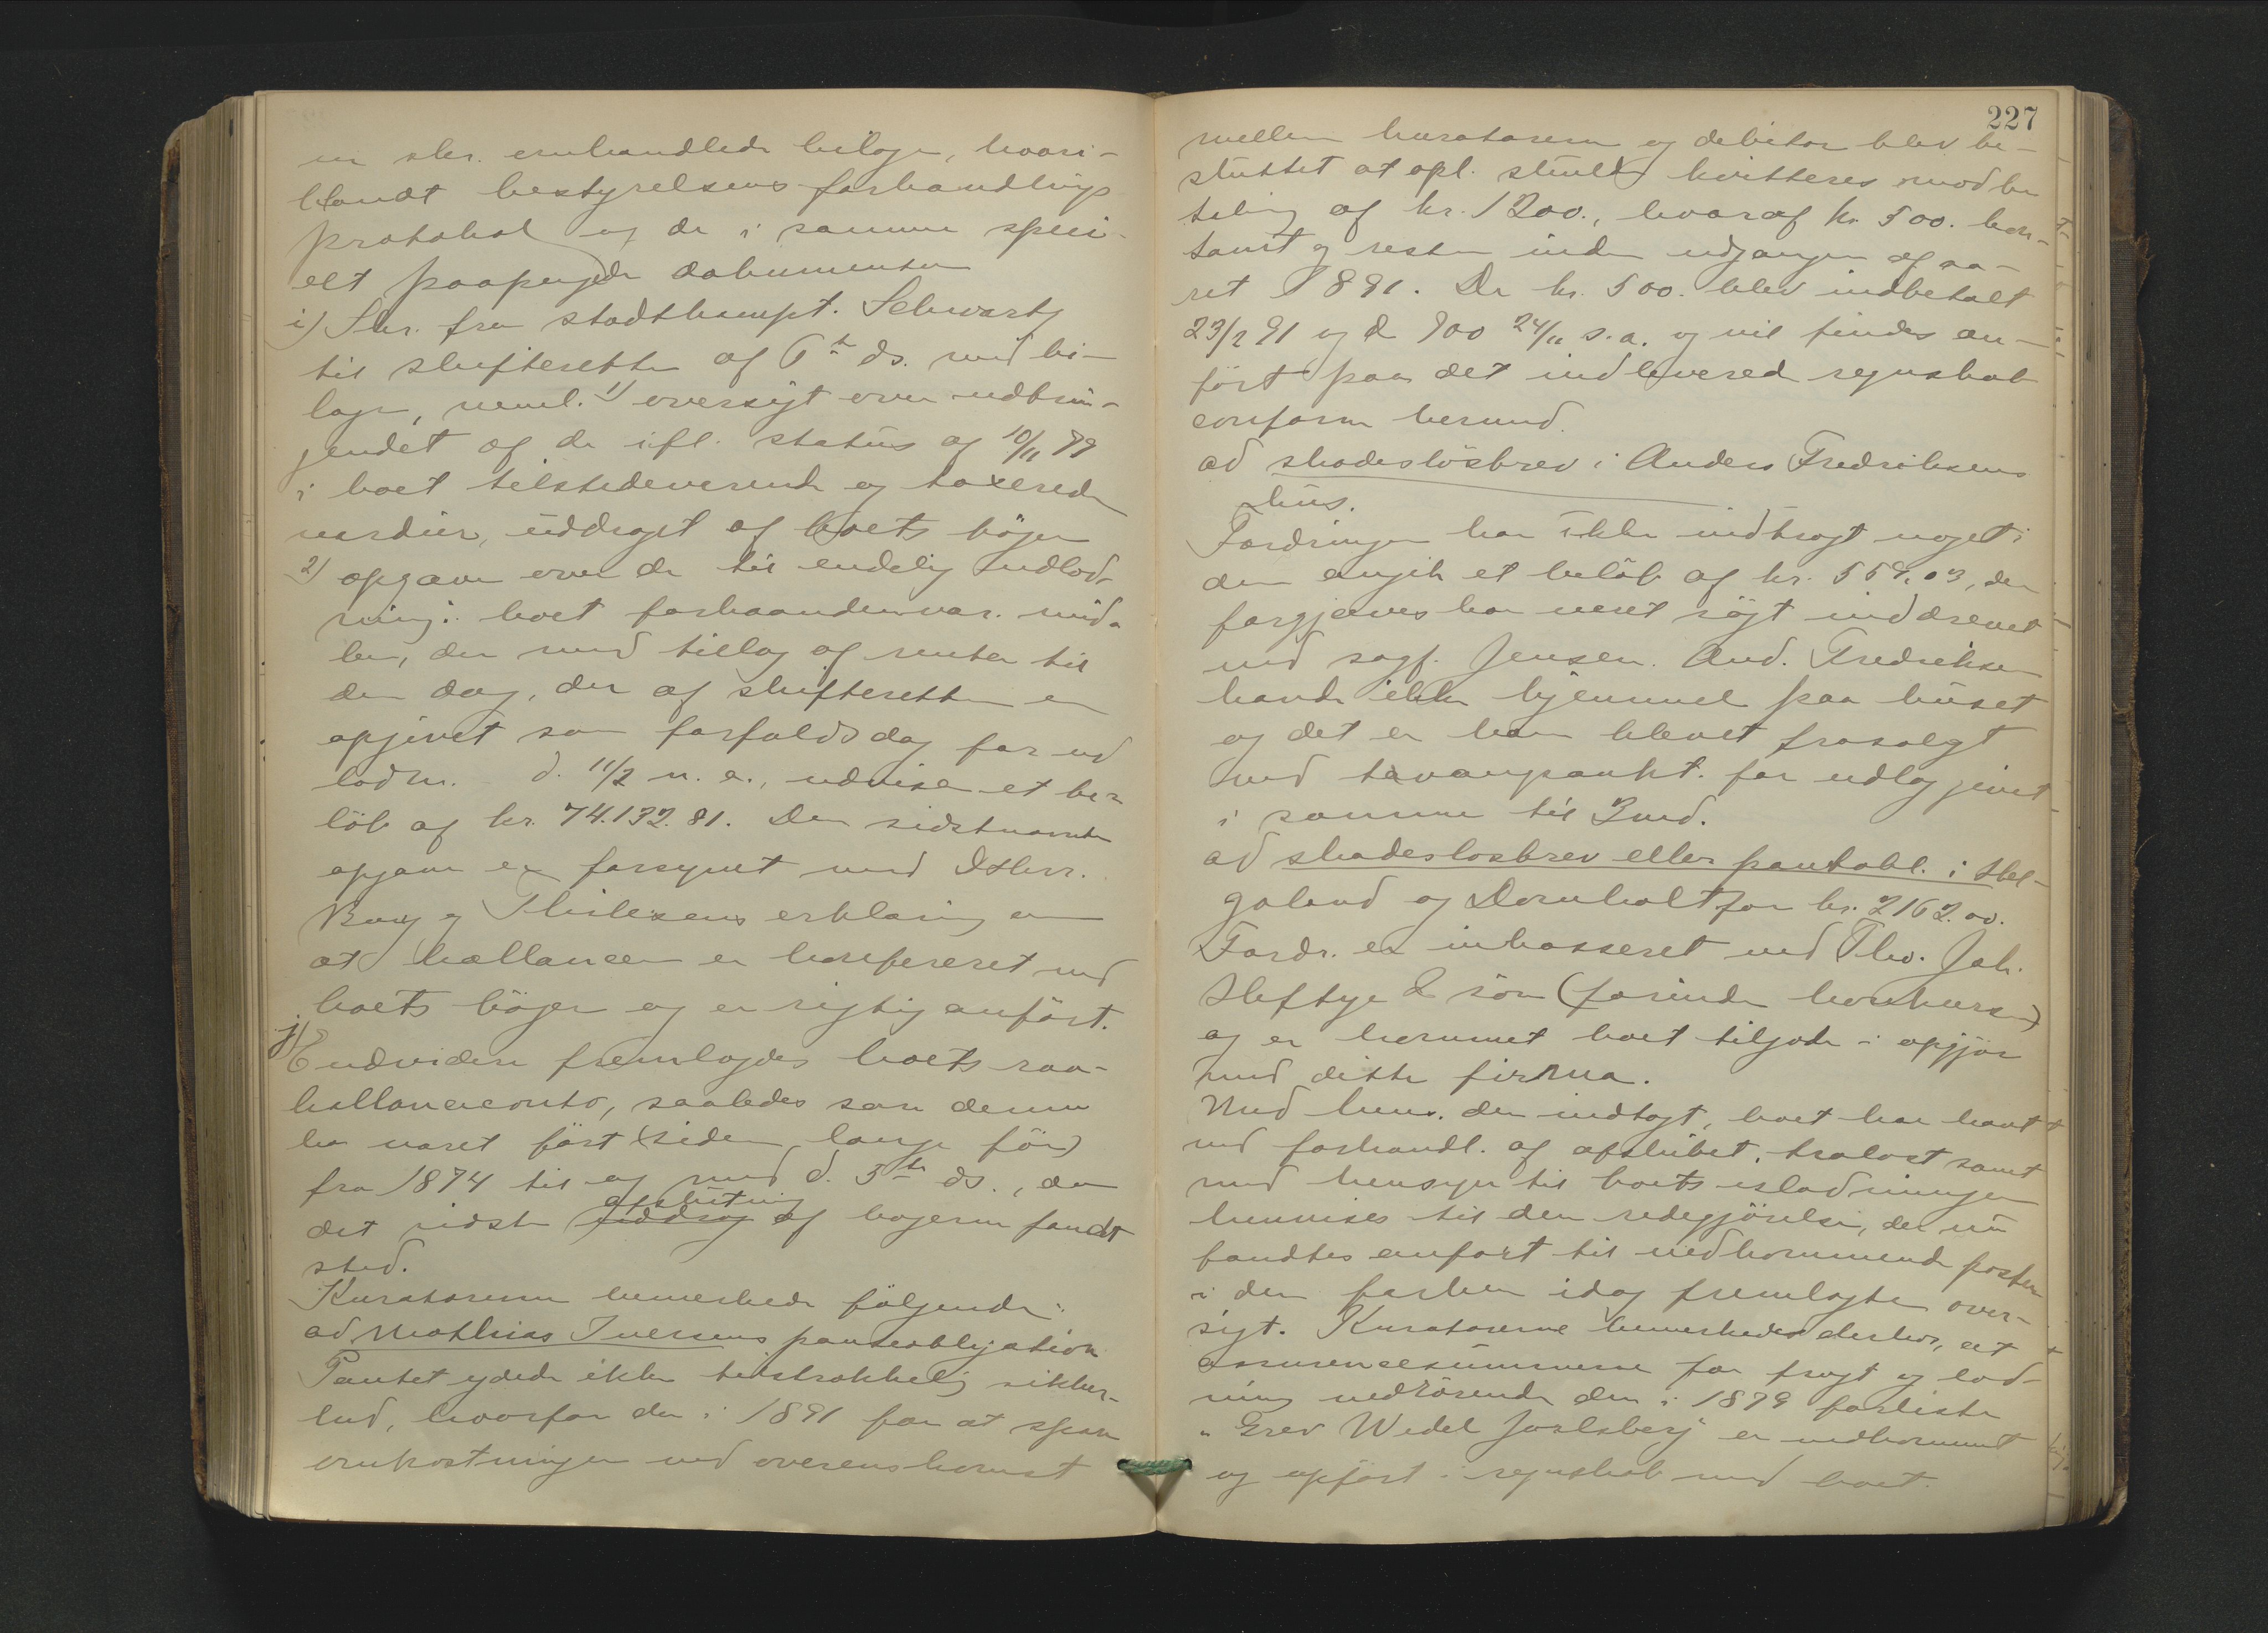 en skr. omhandlede bilage, hvori-
blandt bestyrelsens forhandlings
protokol og de i samme speci-
elt paapegede dokumenter
i) Skr. fra stadthaupt. Schwartz
til skifteretten af 6te ds. med bi-
lage, neml. 1) oversigt over udbrin-
gendet af de ifl. status af 10/11 79
i boet tilstedeverende og taxerede
verdier, uddraget af boets böger
2) opgave over de til endelig udlod-
ning i boet forhaandenvær. mid-
ler, der med tillæg af renter til
den dag, der af skifteretten er
opgivet som forfaldsdag for ud
lodn. d. 11/2 n. a., udviser et be-
löb af kr. 74.132.81. Den sidstnævnte
opgave er forsynet med DHrr.
Bay og Thilesens erklæring om
at ballancen er konfereret med
boets böger og er rigtig anfört.
j) Endvidere fremlagdes boets raa-
ballanceconto, saaledes som denne
har været fört (siden længe för)
fra 1874 til og med d. 5te ds., da
afslutning
det sidste uddrag af bögerne fandt
sted.
Kuratorerne bemerkede fölgende:
ad Mathias Iversens panteobligation
Pantet ydede ikke tilstrækkelig sikker-
hed, hvorfor der i 1891 for at spare
omkostninger ved overenskomst
227
mellem kuratorerne og debitor blev be-
sluttet at opl. skulde kvitteres mod be
taling af kr. 1200., hvoraf kr. 500. kon-
tant og resten inden udgangen af aa-
ret 1891. De kr. 500. blev indbetalt
23/2 91 og de 700 24/11 s. a. og vil findes an-
fört paa det indleverede regnskab
conform hermed.
ad skadeslösbrev i Anders Fredriksens
hus.
Fordringen har ikke indbragt noget;
den angik et belöb af kr. 559.03, der
forgjæves har været sögt inddrevet
ved sagf. Jensen. And. Fredriksen
havde ikke hjemmel paa huset
og det er ham blevet frasolgt
ved tvangsaukt. for udlæg givet
i samme til 3md.
ad skadeslosbrev eller pantobl. i Hel-
goland og Dornholt for kr. 2162.00.
Fordr. er inkasseret ved Tho. Joh.
Heftye & sön (forinden konkursen)
og er kommet boet tilgode i opgjör
med dette firma.
Med hens. den indtægt, boet har havt
ved forhandl. af afskibet. trælast samt
med hensyn til boets isladninger
henvises til den redegjörelse, der nu
fandtes anfört til vedkommende poster
i den forhen idag fremlagte over-
sigt. Kuratorerne bemerkede derhos, at
assurancesummerne for fragt og lad-
ning vedrörende den i 1879 forliste
"Grev Wedel Jarlsberg er indkommet
og opfört i regnskab med boet.